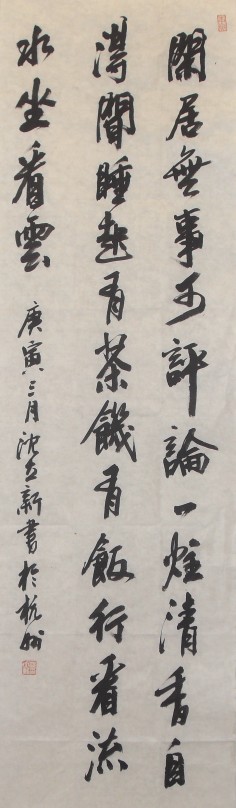 閑居無事可評論一炷清香自
得聞睡起有茶饑有飯行看流
水坐看雲
庚寅三月沈立新書於杭州